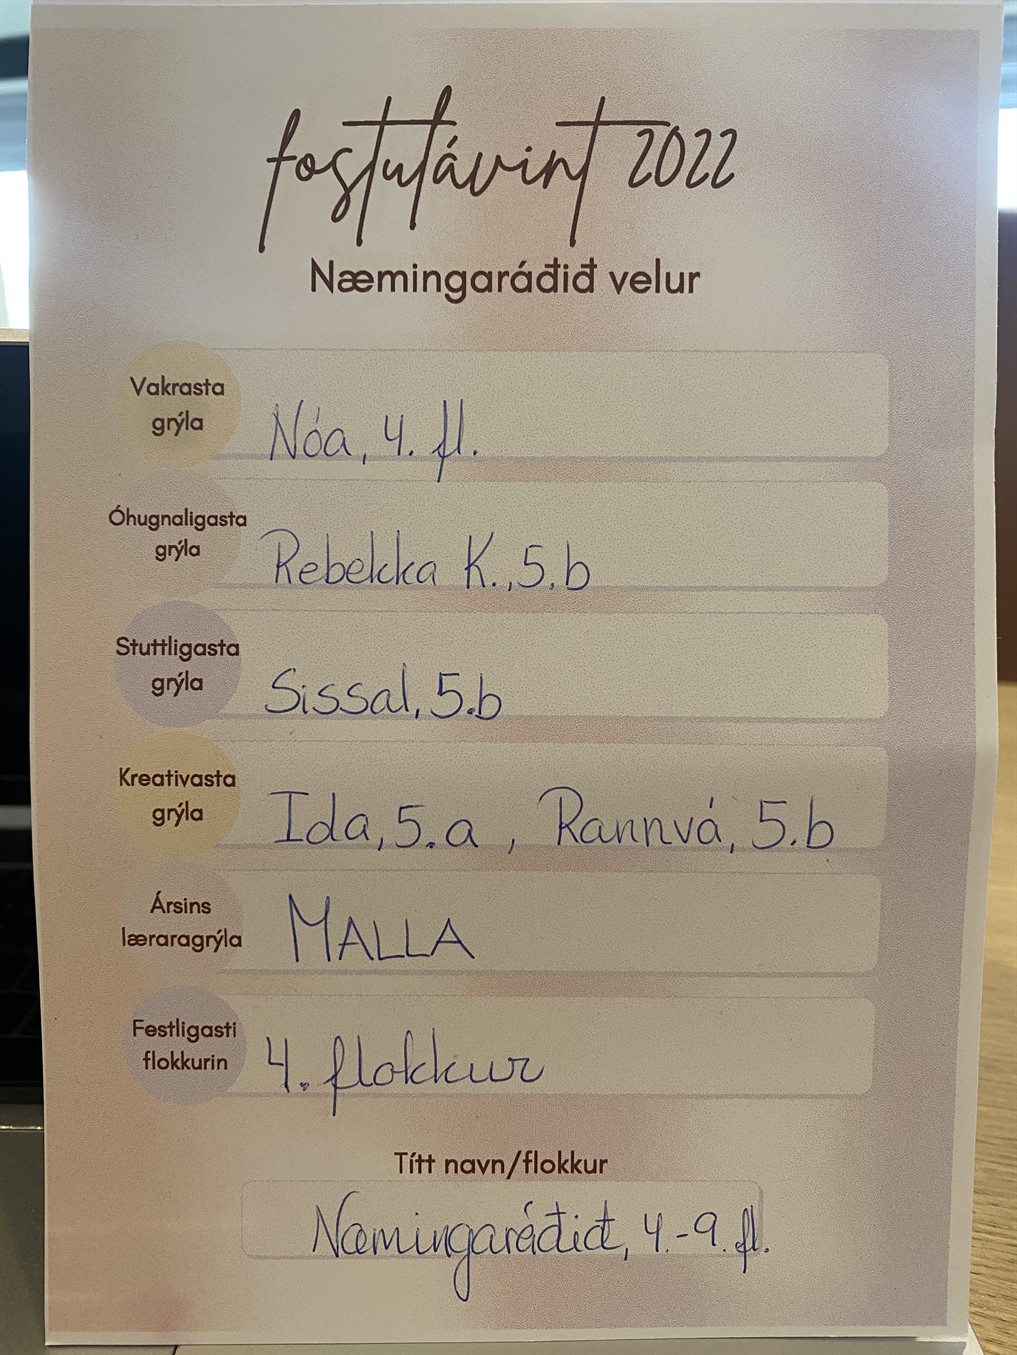 fostulávint 2022
Næmingaráðið velur
Vakrasta
grýla
Nóa, 4. fl.
Óhugnaligasta
grýla
Rebekka K., 5.b
Stuttligasta
grýla
Sissal, 5.b
Kreativasta
grýla
Ida, 5.a , Rannvá, 5.b
Ársins
læraragrýla
MALLA
Festligasti
flokkurin
4. flokkur
Títt navn/flokkur
Næmingaráðið, 4.-9. fl.